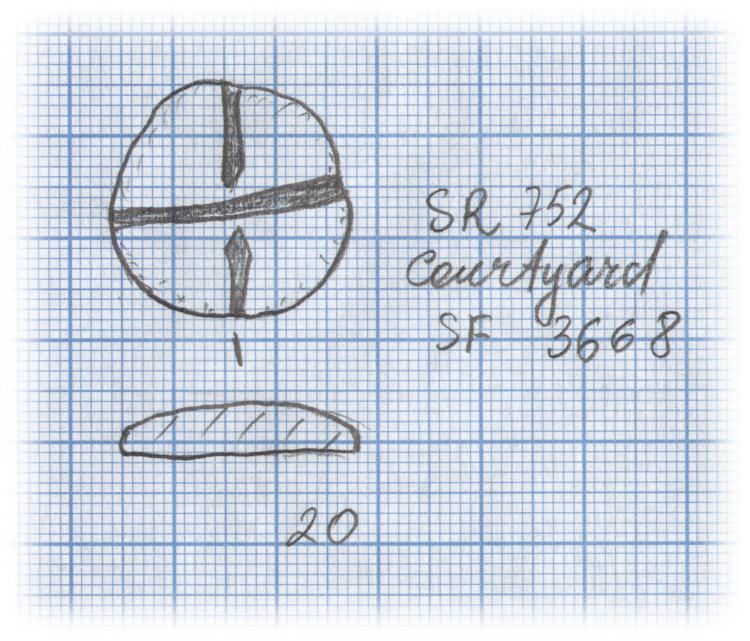 SR 752
Courtyard
SF 3668
20